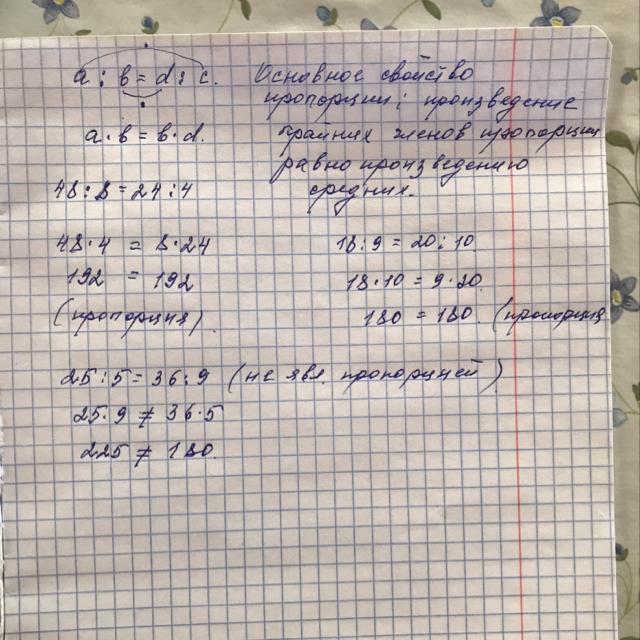 a : b = d : c.
Основное свойство
пропорции: произведение
крайних членов пропорции
равно произведению
средних.
a · b = b · d.
48 : 8 = 24 : 4
48 · 4 = 8 · 24
192 = 192
(пропорция)
18 : 9 = 20 : 10
18 · 10 = 9 · 20
180 = 180 (пропорция
25 : 5 = 36 : 9 (не явл. пропорцией)
25 · 9 ≠ 36 · 5
225 ≠ 180